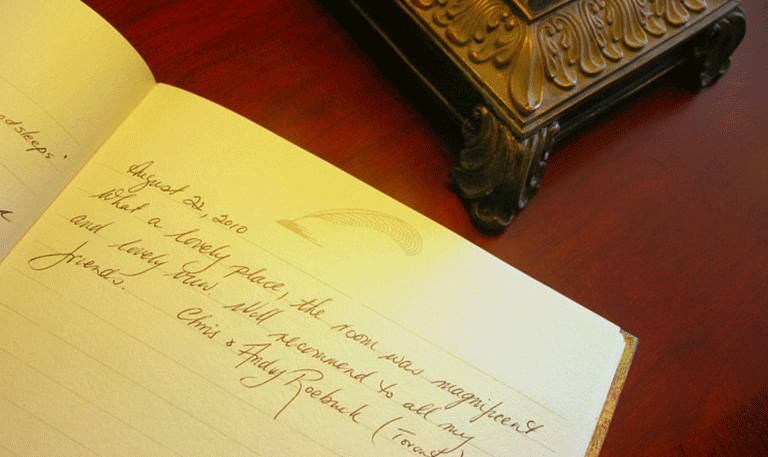 ndsleeps'
August 22, 2010
What a lovely place, the room was magnificent
and lovely view. Will recommend to all my
friends.
Chris & Andy Roebuck (Toronto)